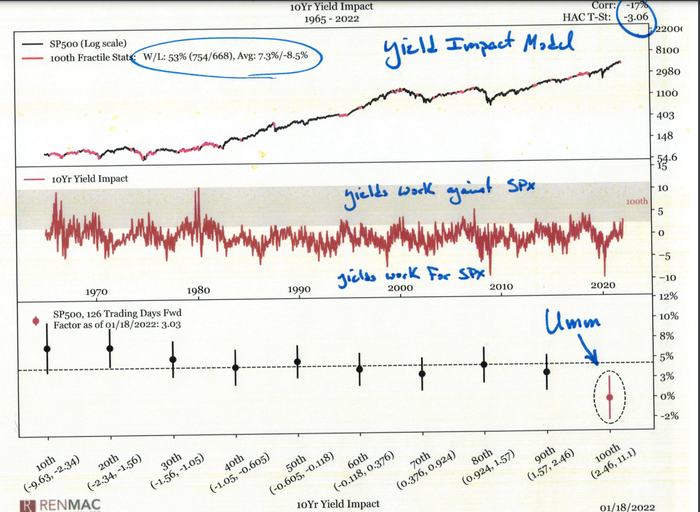 10Yr Yield Impact
1965 - 2022
Corr: -17%
HAC T-St: -3.06
SP500 (Log scale)
100th Fractile Stats: W/L: 53% (754/668), Avg: 7.3%/-8.5%
Yield Impact Model
22000
8100
2980
1100
403
148
54.6
10Yr Yield Impact
yields work against SPX
100th
yields work For SPX
15
10
5
0
-5
-10
1970
1980
1990
2000
2010
2020
SP500, 126 Trading Days Fwd
Factor as of 01/18/2022: 3.03
Umm
12%
10%
8%
5%
3%
0%
-2%
10th
(-9.63, -2.34)
20th
(-2.34, -1.56)
30th
(-1.56, -1.05)
40th
(-1.05, -0.605)
50th
(-0.605, -0.118)
60th
(-0.118, 0.376)
70th
(0.376, 0.924)
80th
(0.924, 1.57)
90th
(1.57, 2.46)
100th
(2.46, 11.1)
RENMAC
10Yr Yield Impact
01/18/2022